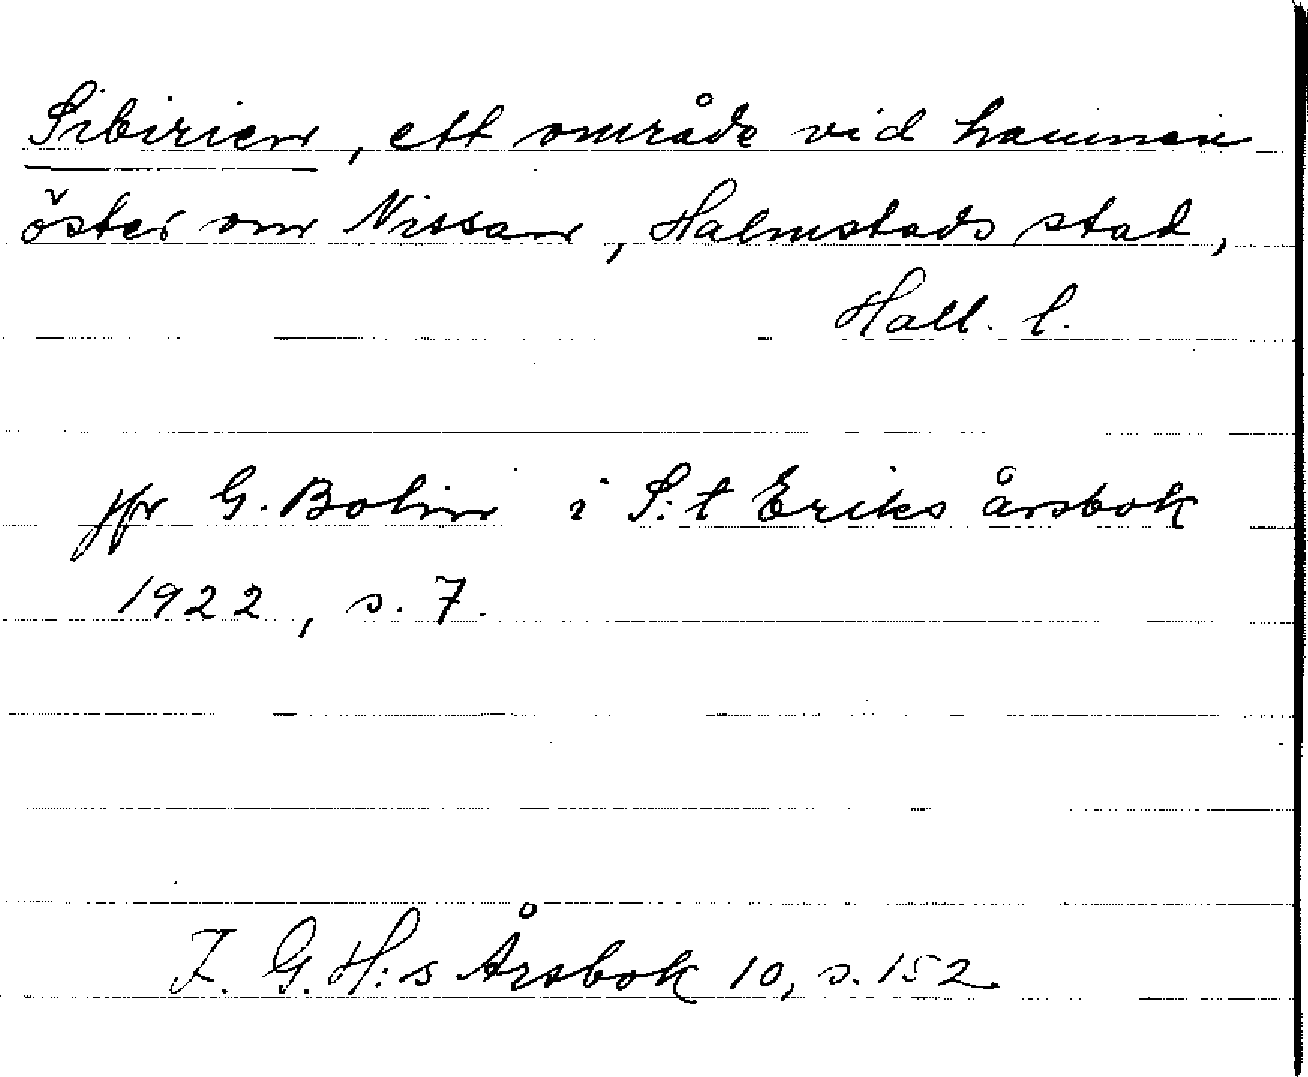 Sibirien, ett område vid hamnen
öster om Nissan, Halmstads stad,
Hall. l.
jfr G. Bolin i S:t Eriks årsbok
1922, s. 7.
F. G. H:s Årsbok 10, s. 152.